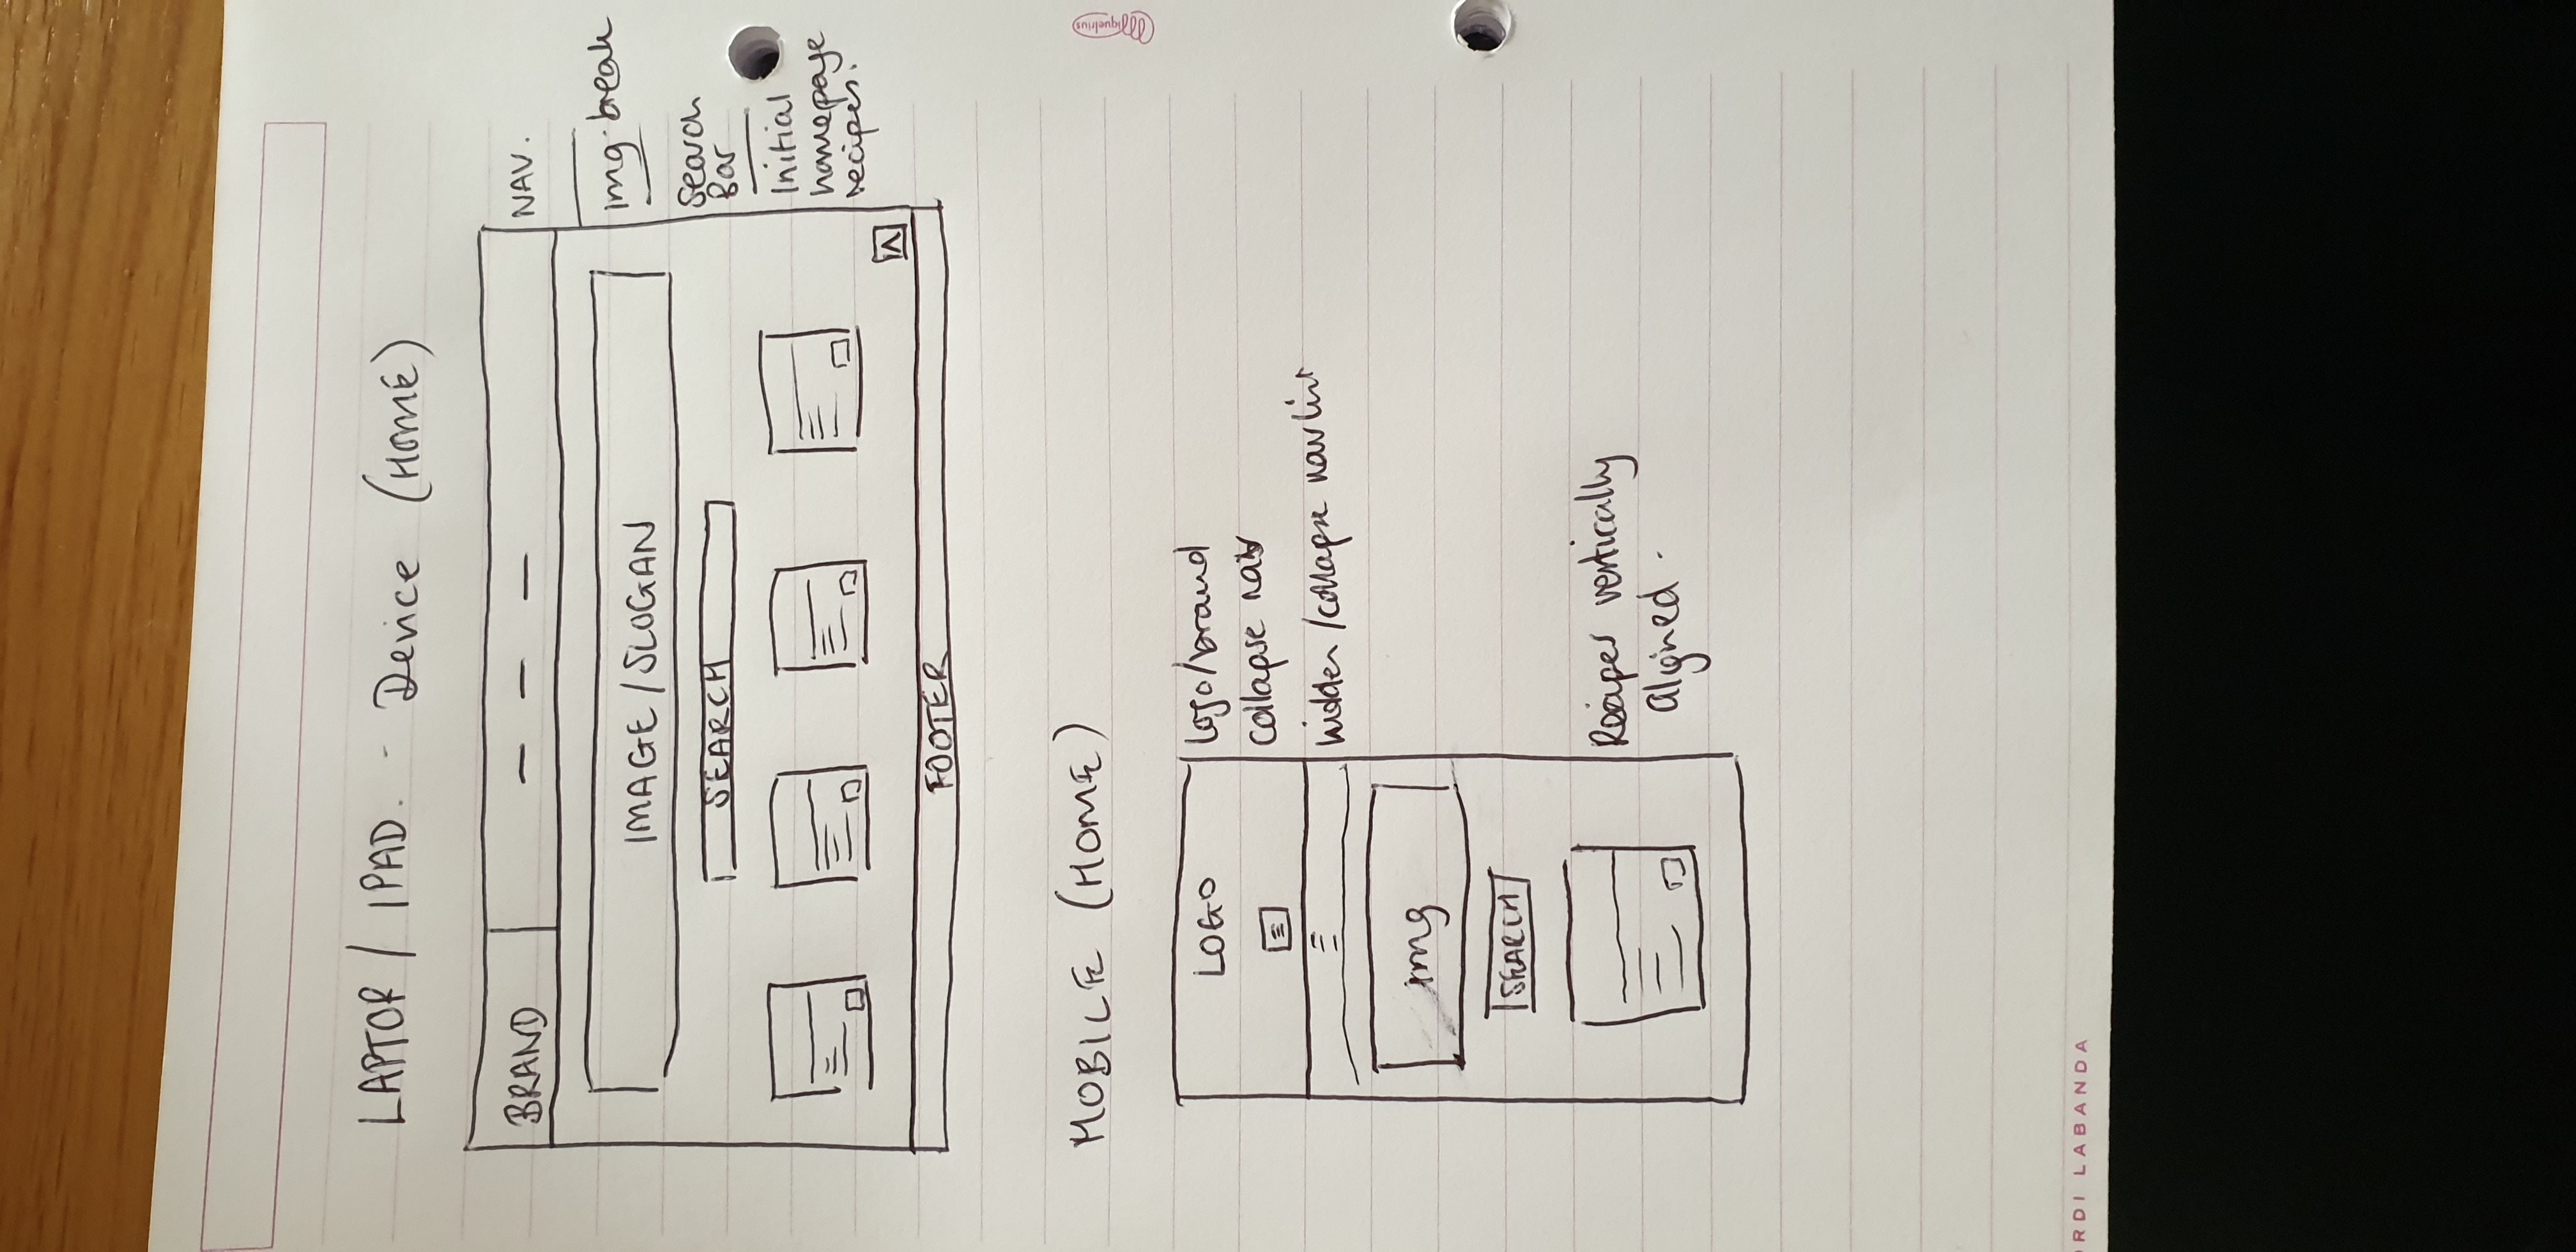 LAPTOP / IPAD. - Device (HOME)
BRAND
NAV.
IMAGE / SLOGAN
img-break
SEARCH
Search
Bar
Initial
homepage
recipes.
FOOTER
MOBILE (HOME)
LOGO
logo/brand
collapse nav
hidden /collapse nav list
img
SEARCH
Recipes vertically
aligned.
miquelrius
ORDI LABANDA